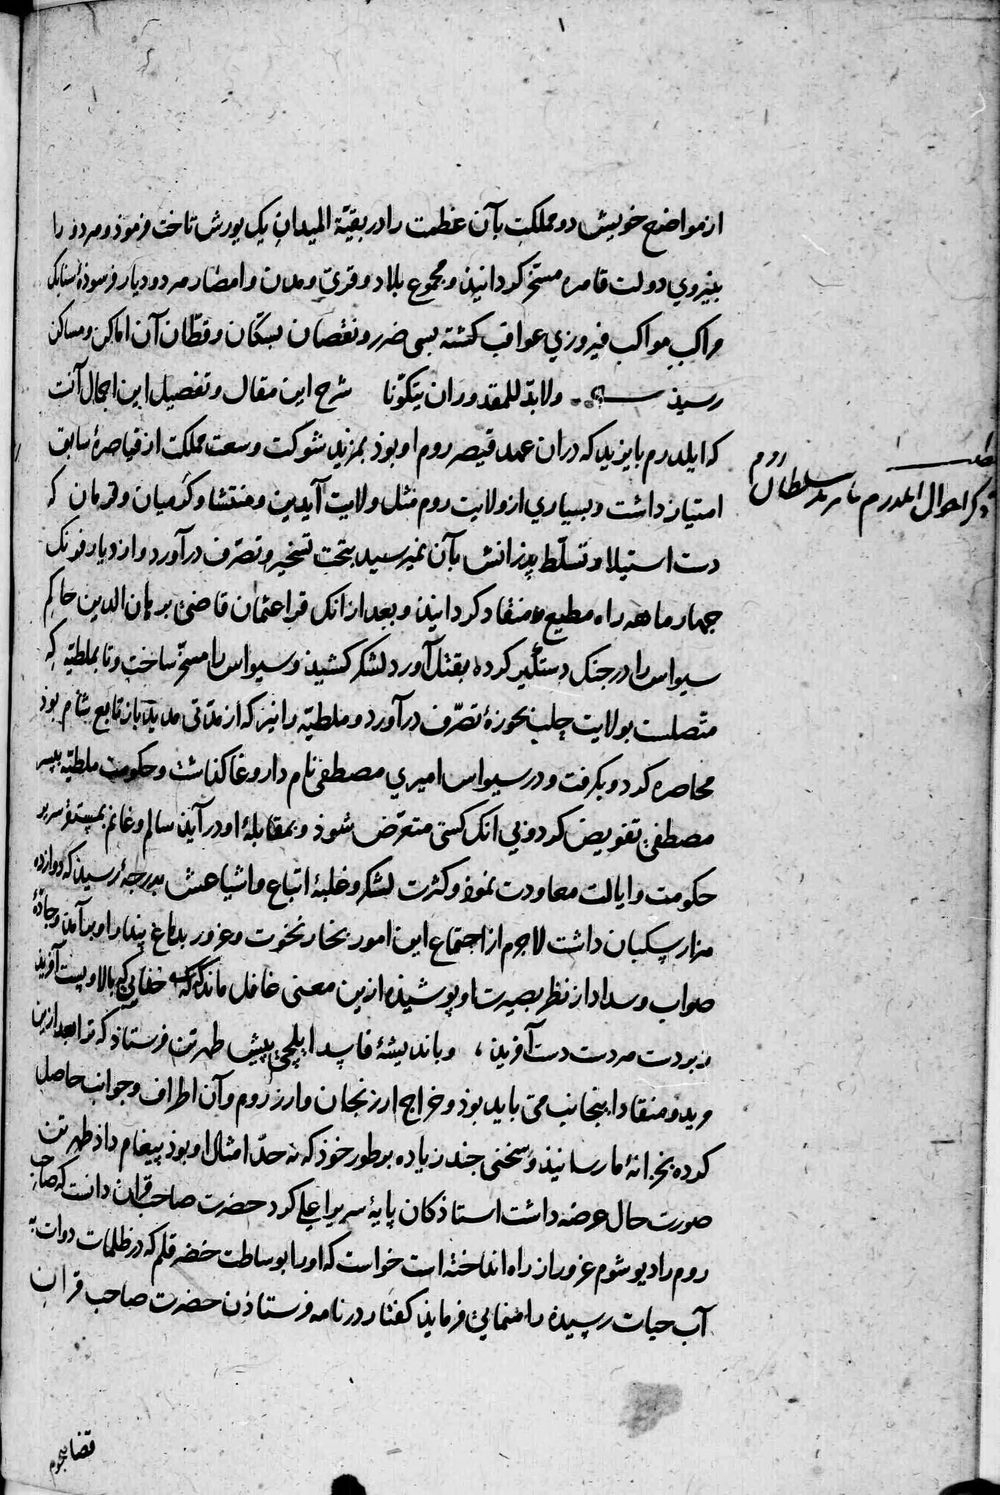 از مواضع خویش دو مملکت بآن عظمت را در بقیّة المیدان یک یورش تاخت فرموذ و هر دو را
بنیروی دولت قاهره مسخّر کردانید و مجموع بلاد و قری و مدن و امصار هر دو دیار فرسوذهٔ سنابک
مراکب مواکب فیروزی عواقب کشته بسی ضرر و نقصان بسکّان و قطّان آن اماکن و مساکن
رسید ولا بدّ للمقدور ان یتکوّنا شرح این مقال و تفصیل این اجمال آنست
که ایلدرم بایزید که در ان عهد قیصر روم او بوذ بمزید شوکت و سعت مملکت از قیاصرهٔ سابق
امتیاز داشت و بسیاری از ولایت روم مثل ولایت آیدین و منتشا و کرمیان و قرمان که
دست استیلا و تسلّط پذرانش بآن نمیرسید بتحت تسخیر و تصرّف درآورد و از دیار فرنک
چهار ماهه راه مطیع و منقاد کردانید و بعد از انک قرا عثمان قاضی برهان الدین حاکم
سیواس را در جنک دستکیر کرده بقتل آورد لشکر کشید و سیواس را مسخّر ساخت و تا بملطیّه که
متّصلست بولایت حلب بحوزهٔ تصرّف درآورد و ملطیّه را نیز که از مدّتی مدید باز تابع شام بوذ
محاصره کرد و بکرفت و در سیواس امیری مصطفی نام داروغا کذاشت و حکومت ملطیّه بپسر
مصطفی تفویض کرد و بی انک کسی متعرّض شوذ و بمقابلهٔ او درآید سالم و غانم بمستقرّ سریر
حکومت و ایالت معاودت نموذ و کثرت لشکر و غلبهٔ اتباع و اشیاعش بدرجهٔ رسید که دوازده
هزار سکبان داشت لاجرم از اجتماع این امور بخار نخوت و غرور بدماغ پندار او برآمد و جادّهٔ
صواب و سداد از نظر بصیرت او پوشیذه ازین معنی غافل ماند که خدایی که بالا و پست آفرید
زبر دست هر دست دست آفرید ، و باندیشهٔ فاسد ایلچی پیش طهرتن فرستاذ که ترا بعد ازین
مرید و منقاد اینجانب می باید بوذ و خراج ارزنجان و ارز روم و آن اطراف و جوانب حاصل
کرده بخزانهٔ ما رسانید و سخنی چند زیاده بر طور خوذ که نه حدّ امثال او بوذ پیغام داد طهرتن
صورت حال عرضه داشت استاذکان پایهٔ سریر اعلی کرد حضرت صاحب قران دانست که صاحب
روم را دیو شوم غرور از راه انداخته است خواست که او را بوساطت خضر قلم که در ظلمات دوات به
آب حیات رسیده راهنمایی فرماید کفتار در نامه فرستاذن حضرت صاحب قران
ذکر احوال ایلدرم بایزید سلطان روم
قضا هجوم